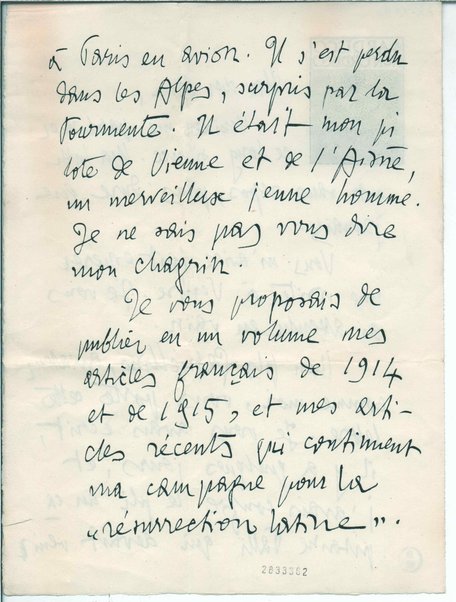 à Paris en avion. Il s'est perdu
dans les Alpes, surpris par la
tourmente. Il était mon pi
lote de Vienne et de l'Aisne,
un merveilleux jeune homme.
Je ne sais pas vous dire
mon chagrin.
Je vous proposais de
publier en un volume mes
articles français de 1914
et de 1915, et mes arti-
cles récents qui continuent
ma campagne pour la
"résurrection latine".
2833362